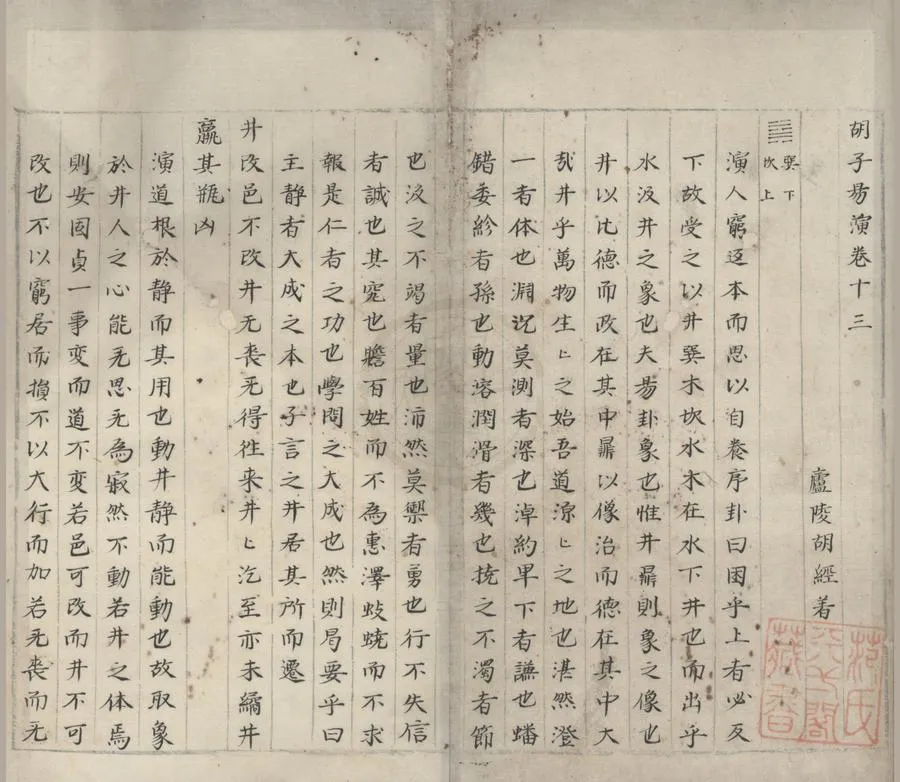 胡子易演卷十三
廬陵胡經著
䷯
巽下
坎上
演人窮迺本而思以自養序卦曰困乎上者必反
下故受之以井巽木坎水木在水下井也而出乎
水汲井之象也夫易卦象也惟井鼎則象之像也
井以比德而政在其中鼎以像治而德在其中大
哉井乎萬物生〻之始吾道源〻之地也湛然澄
一者体也淵沉莫測者深也淖約卑下者謙也蟠
錯委紾者孫也動溶潤滑者幾也撓之不濁者節
也汲之不竭者量也沛然莫禦者勇也行不失信
者誠也其究也贍百姓而不為惠澤蚑蟯而不求
報是仁者之功也學問之大成也然則曷要乎曰
主静者大成之本也子言之井居其所而遷
井改邑不改井无喪无得徃来井〻汔至亦未繘井
羸其瓶凶
演道根於静而其用也動井静而能動也故取象
於井人之心能无思无為寂然不動若井之体焉
則安固貞一事変而道不変若邑可改而井不可
改也不以窮居而損不以大行而加若无喪而无
范氏
天一閣
藏書